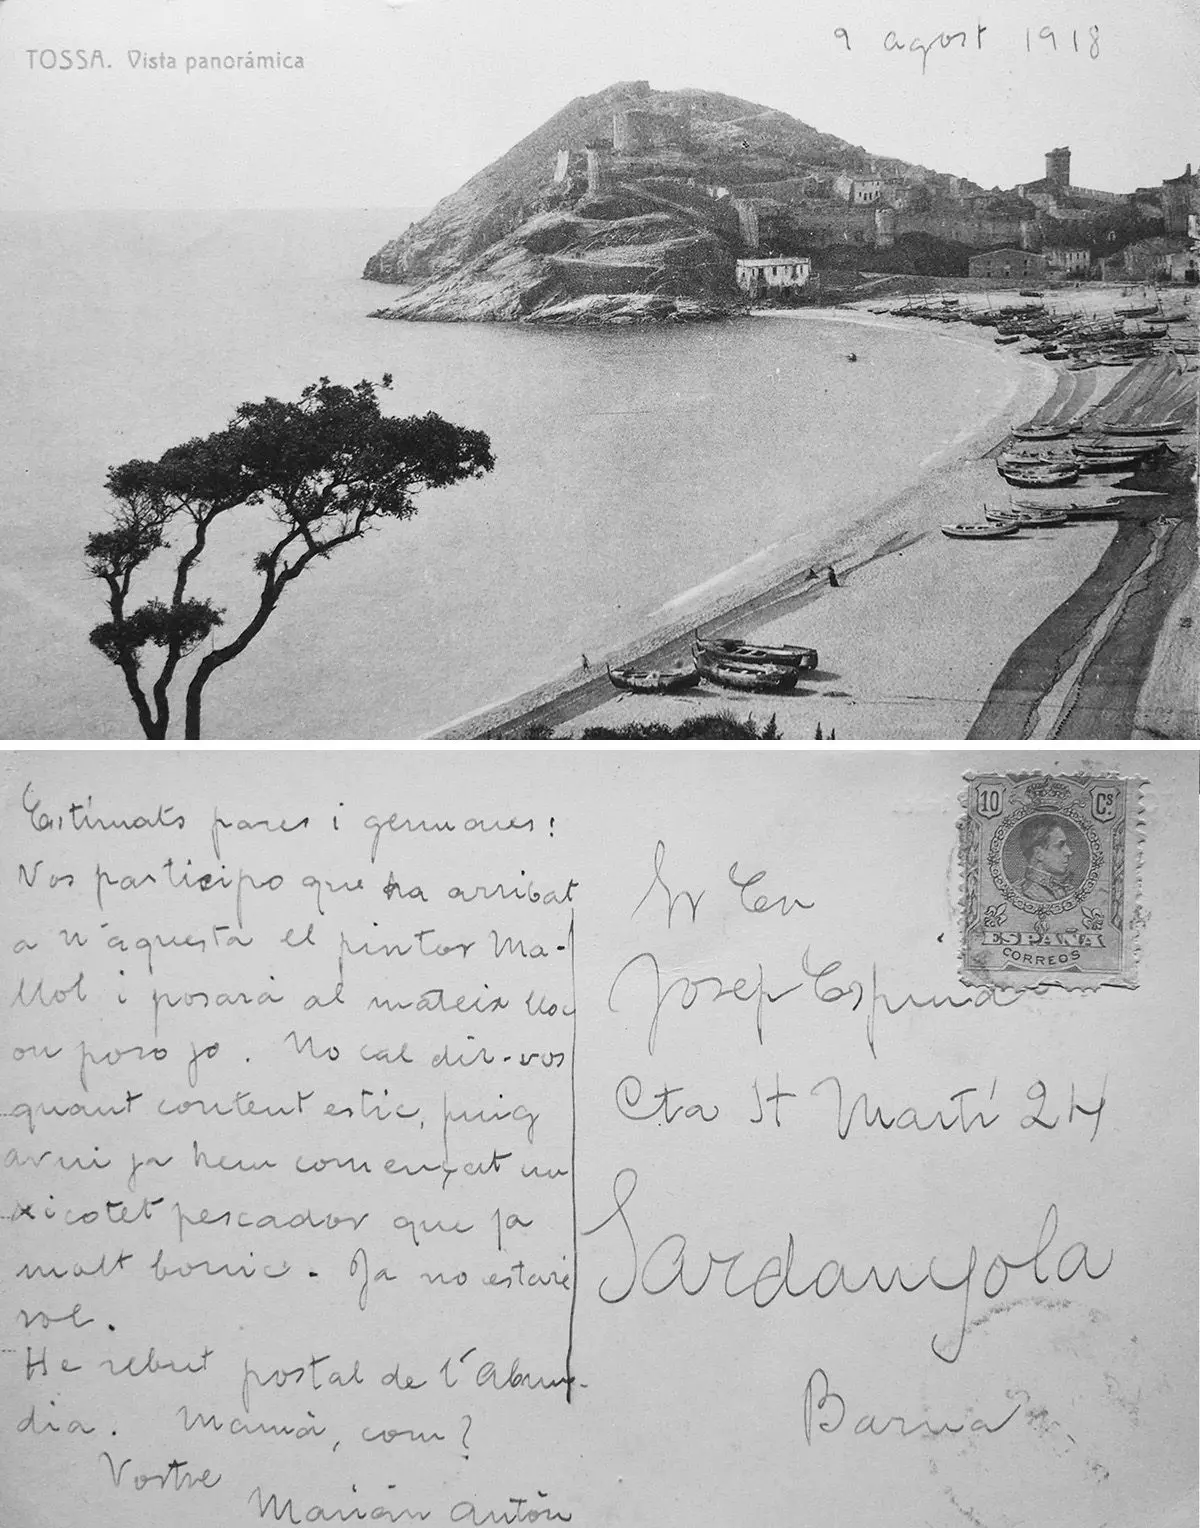 TOSSA. Vista panorámica
9 agost 1918
Estimats pares i germanes:
Vos participo que ha arribat
a n'aquesta el pintor Ma-
llol i posarà al mateix lloc
on poso jo. No cal dir-vos
quant content estic, puig
avui ja hem començat un
xicotet pescador que fa
molt bonic. Ja no estaré
sol.
He rebut postal de l'Abun-
dia. Mamà, com?
Vostre
Marián Antón
10 Cs.
ESPAÑA
CORREOS
Sr En
Josep Espina
Cta St Martí 24
Sardanyola
Barna